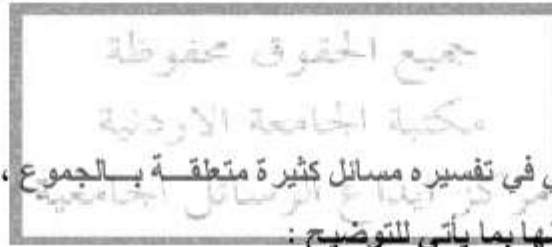 جميع الحقوق محفوظة
مكتبة الجامعة الاردنية
في تفسيره مسائل كثيرة متعلقة بالجموع ،
مركز ايداع الرسائل الجامعية
بما يأتي للتوضيح :